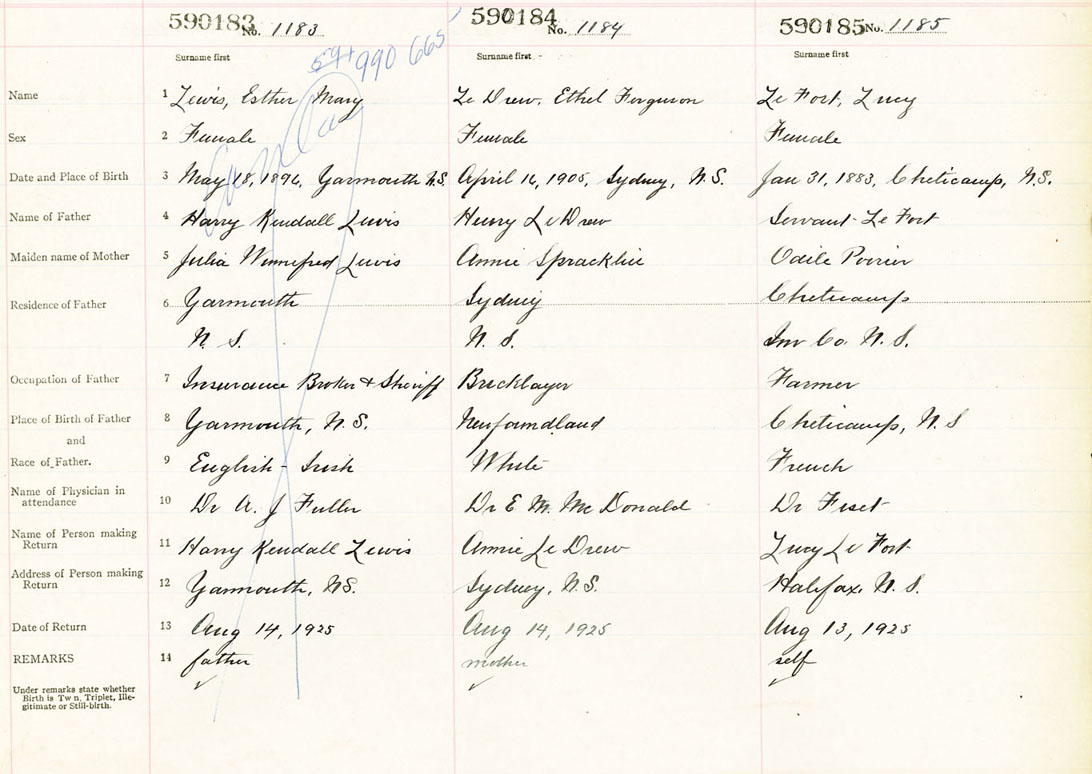 590183 No. 1183 590184 No. 1184 590185 No. 1185
990 665
Surname first Surname first Surname first
Name 1 Lewis, Esther Mary Le Drew, Ethel Ferguson Le Fort, Lucy
Sex 2 Female Female Female
Date and Place of Birth 3 May 18, 1896, Yarmouth N.S. April 16, 1905, Sydney, N.S. Jan 31, 1883, Cheticamp, N.S.
Name of Father 4 Harry Kendall Lewis Henry Le Drew Servant Le Fort
Maiden name of Mother 5 Julia Winnefred Lewis Annie Spracklin Odile Poirier
Residence of Father 6 Yarmouth Sydney Cheticamp
N. S. N. S. Inv Co. N. S.
Occupation of Father 7 Insurance Broker & Sheriff Bricklayer Farmer
Place of Birth of Father 8 Yarmouth, N.S. Newfoundland Cheticamp, N.S
and
Race of Father. 9 English - Irish White French
Name of Physician in attendance 10 Dr A. J Fuller Dr E. M. Mc Donald Dr Fiset
Name of Person making Return 11 Harry Kendall Lewis Annie Le Drew Lucy Le Fort
Address of Person making Return 12 Yarmouth, NS. Sydney, N.S. Halifax, N. S.
Date of Return 13 Aug 14, 1925 Aug 14, 1925 Aug 13, 1925
REMARKS 14 father mother self
Under remarks state whether
Birth is Twin, Triplet, Ille-
gitimate or Still-birth.